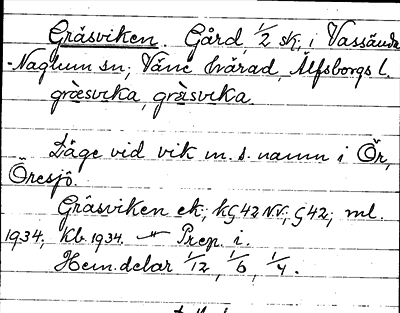 Gräsviken. Gård, 1/2 sk, i Vassända
-Naglum sn; Väne härad, Älfsborgs l.
græsvika, græ̀svika.
Läge vid vik m. s. namn i Ör,
Öresjö.
Gräsviken ek; kG42 NV; G42; ml.
1934; Kb. 1934. –"– Prep. i.
Hem.delar 1/12, 1/6, 1/4.